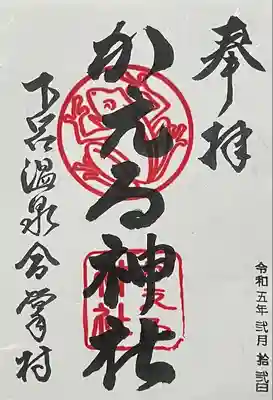 奉拝
令和五年 弐月 拾弐日
かえる神社
下呂温泉合掌村